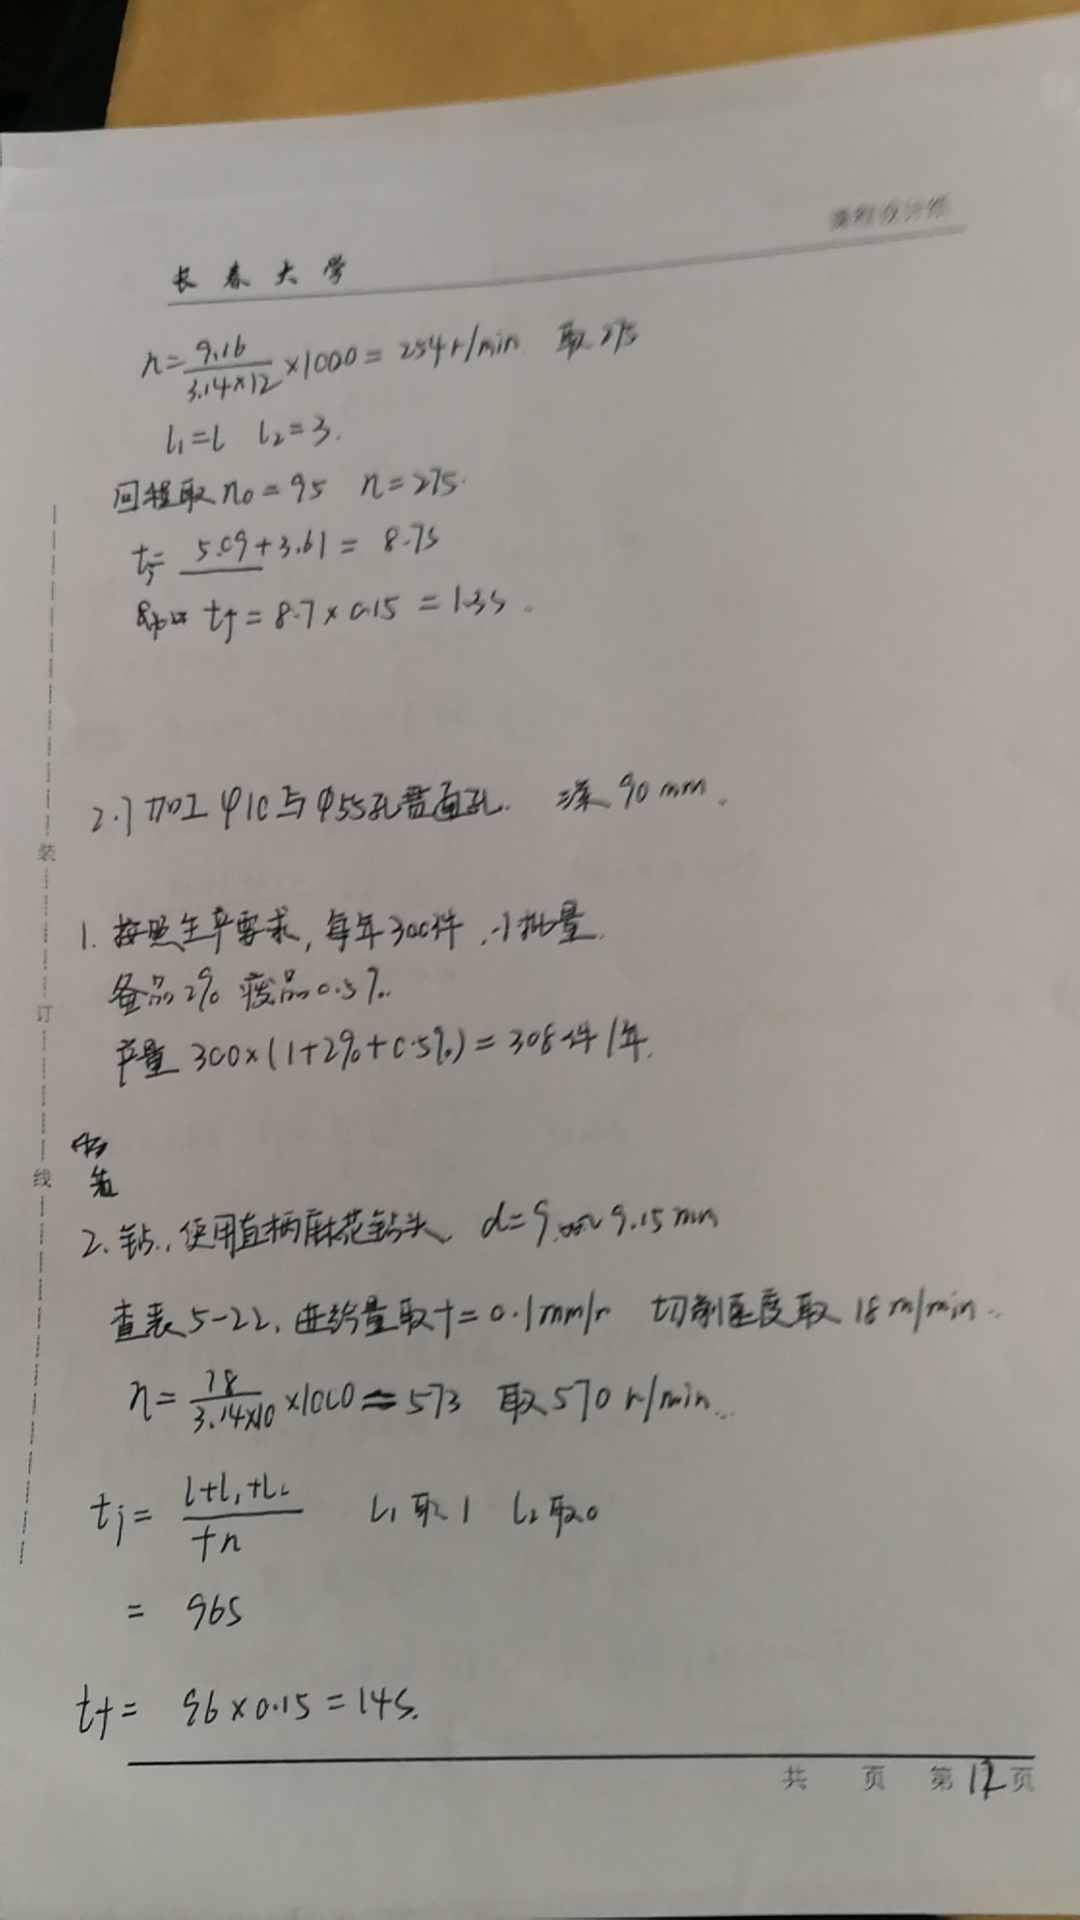 课程设计纸
长春大学
n=9.16/3.14×12×1000=254r/min 取275
l₁=l l₂=3.
回程取n₀=95 n=275.
tj= 5.09+3.61= 8.7s
tf=8.7×0.15=1.3s.
2.) 加工φ10与φ55孔普通孔. 深90mm.
1. 按照生产要求,每年300件,小批量.
备品2% 废品0.5%.
产量 300×(1+2%+0.5%)=308件/年.
装
订
线
2. 钻,使用直柄麻花钻头, 9.15mm
查表5-22,进给量取f=0.1mm/r 切削速度取18m/min.
n=18/3.14×10×1000≈573 取570r/min.
tj= l+l₁+l₂/fn l₁取1 l₂取0
= 96s
tf= 96×0.15=14s.
共 页 第12页